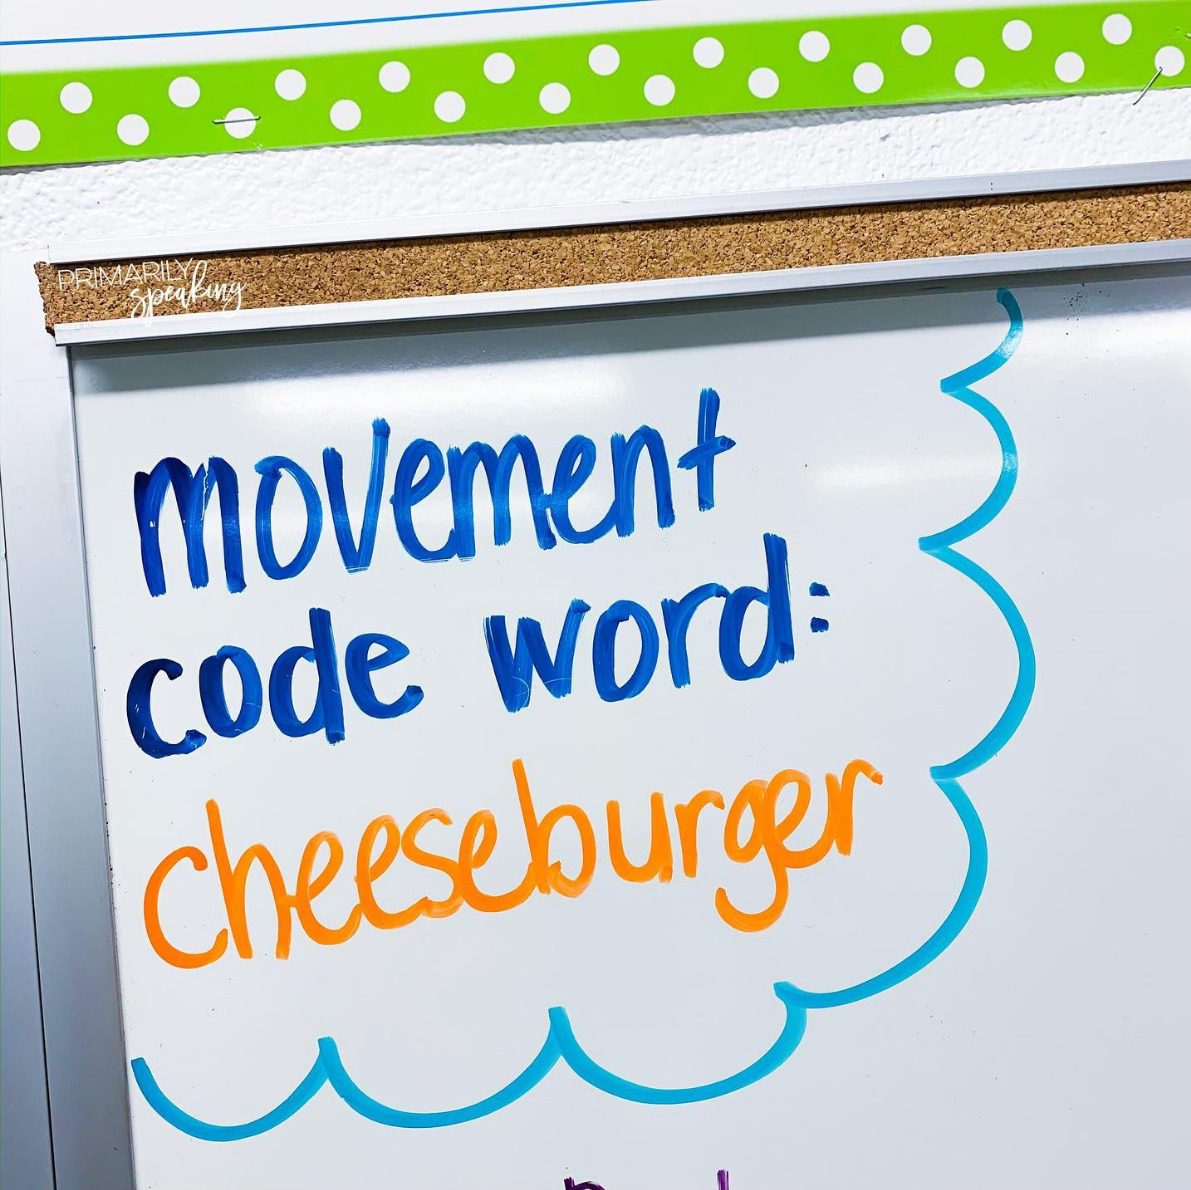 PRIMARILY
speaking
movement
code word:
cheeseburger